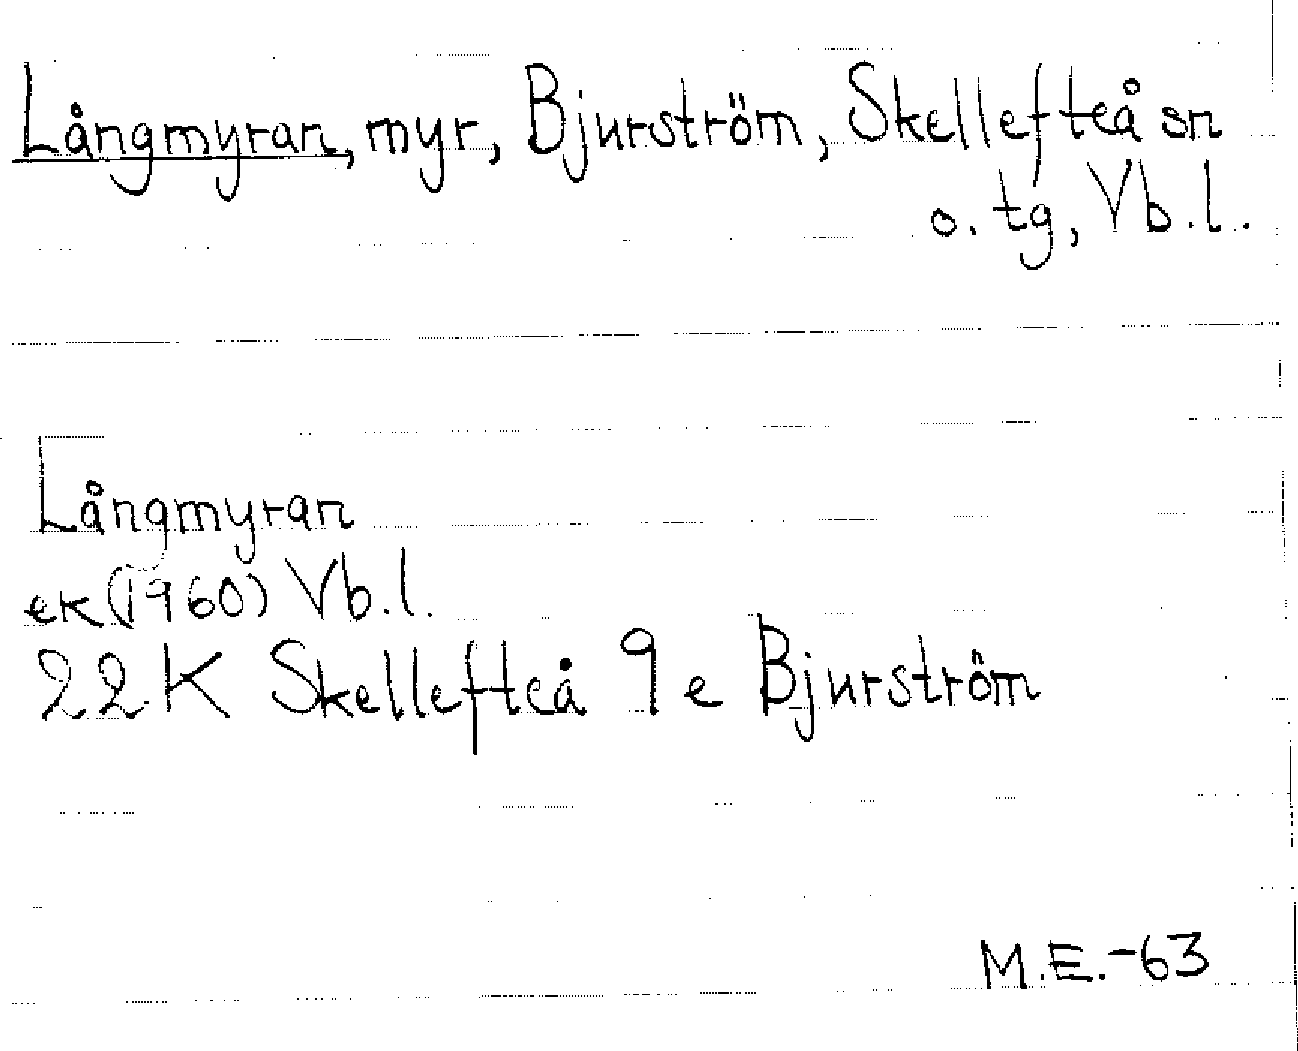 Långmyran, myr, Bjurström, Skellefteå sn
o. tg, Vb.l.
Långmyran
ek (1960) Vb.l.
22 K Skellefteå 9 e Bjurström
M.E.-63